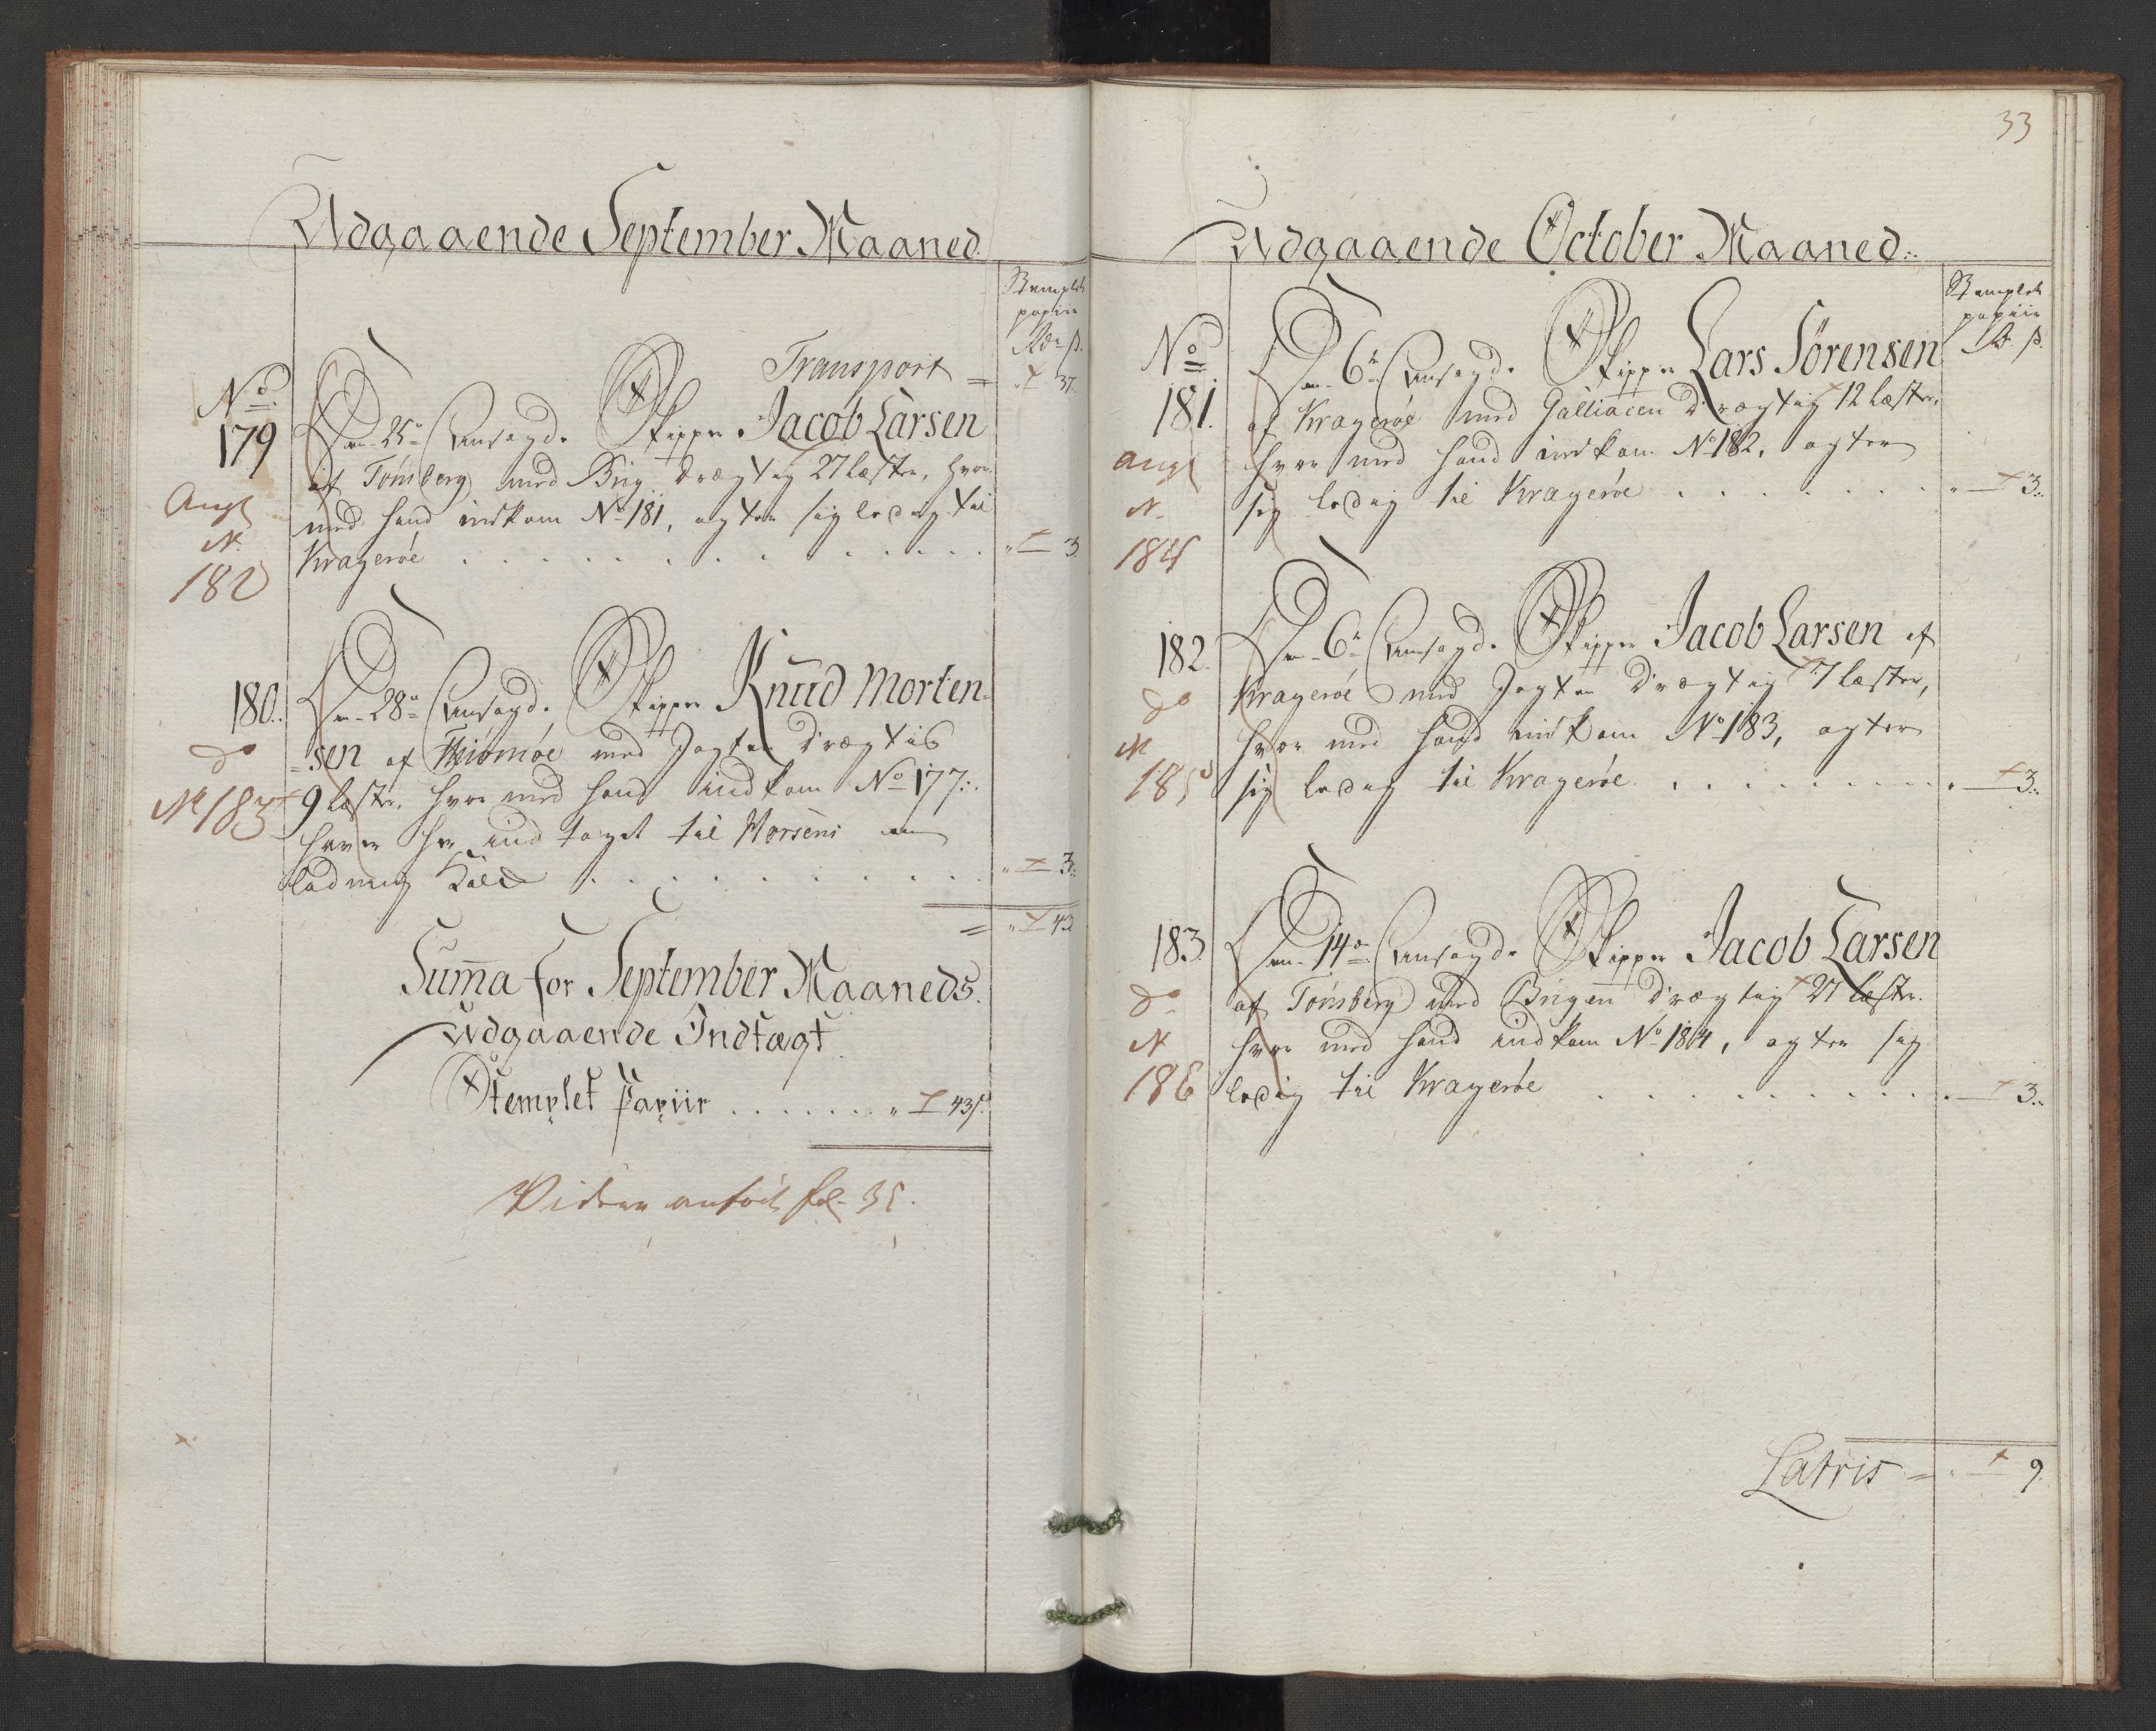 Udgaaende September Maaned.
Stemplet
papiir
Rdr ß.
Transport = " 37.
No
179
Den 25de Ansagde Skipper Jacob Larsen
af Tønsberg med Brig drægtig 27 læster, hvor
med hand indkom No 181, agter sig ledig til
Kragerøe . . . . . . . . . . . " 3
Angl
N.
182
180. Den 28de Ansagde Skipper Knud Morten-
=sen af Thiømøe med Jagten drægtig
9 læster hvor med hand indkom No 177.
haver her indtaget til Horsens en
ladning Kalk . . . . . . . . . " 3.
do
N 183
= " 43
Suma for September Maaneds
Udgaaende Indtægt
Stemplet Papiir . . . . . . . " 43 ß
Videre anført fol. 35.
33
Udgaaende October Maaned.
Stemplet
papiir
Rd. ß.
No
181. Den 6te Ansagde Skipper Lars Sørensen
af Kragerøe med Galliacen drægtig 12 læster,
hvor med hand indkom No 182, agter
sig ledig til Kragerøe . . . . . . . " 3.
Angl
N.
184
182. Den 6te Ansagde Skipper Jacob Larsen af
Kragerøe med Jagten drægtig 7 læster,
hvor med hand indkom No 183, agter
sig ledig til Kragerøe . . . . . . . . 3.
do
N
185
183. Den 14de Ansagde Skipper Jacob Larsen
af Tønsberg med Brigen drægtig 27 læster.
hvor med hand indkom No 184, agter sig
ledig til Kragerøe . . . . . . . . . 3.
do
N
186
Latris = " 9.